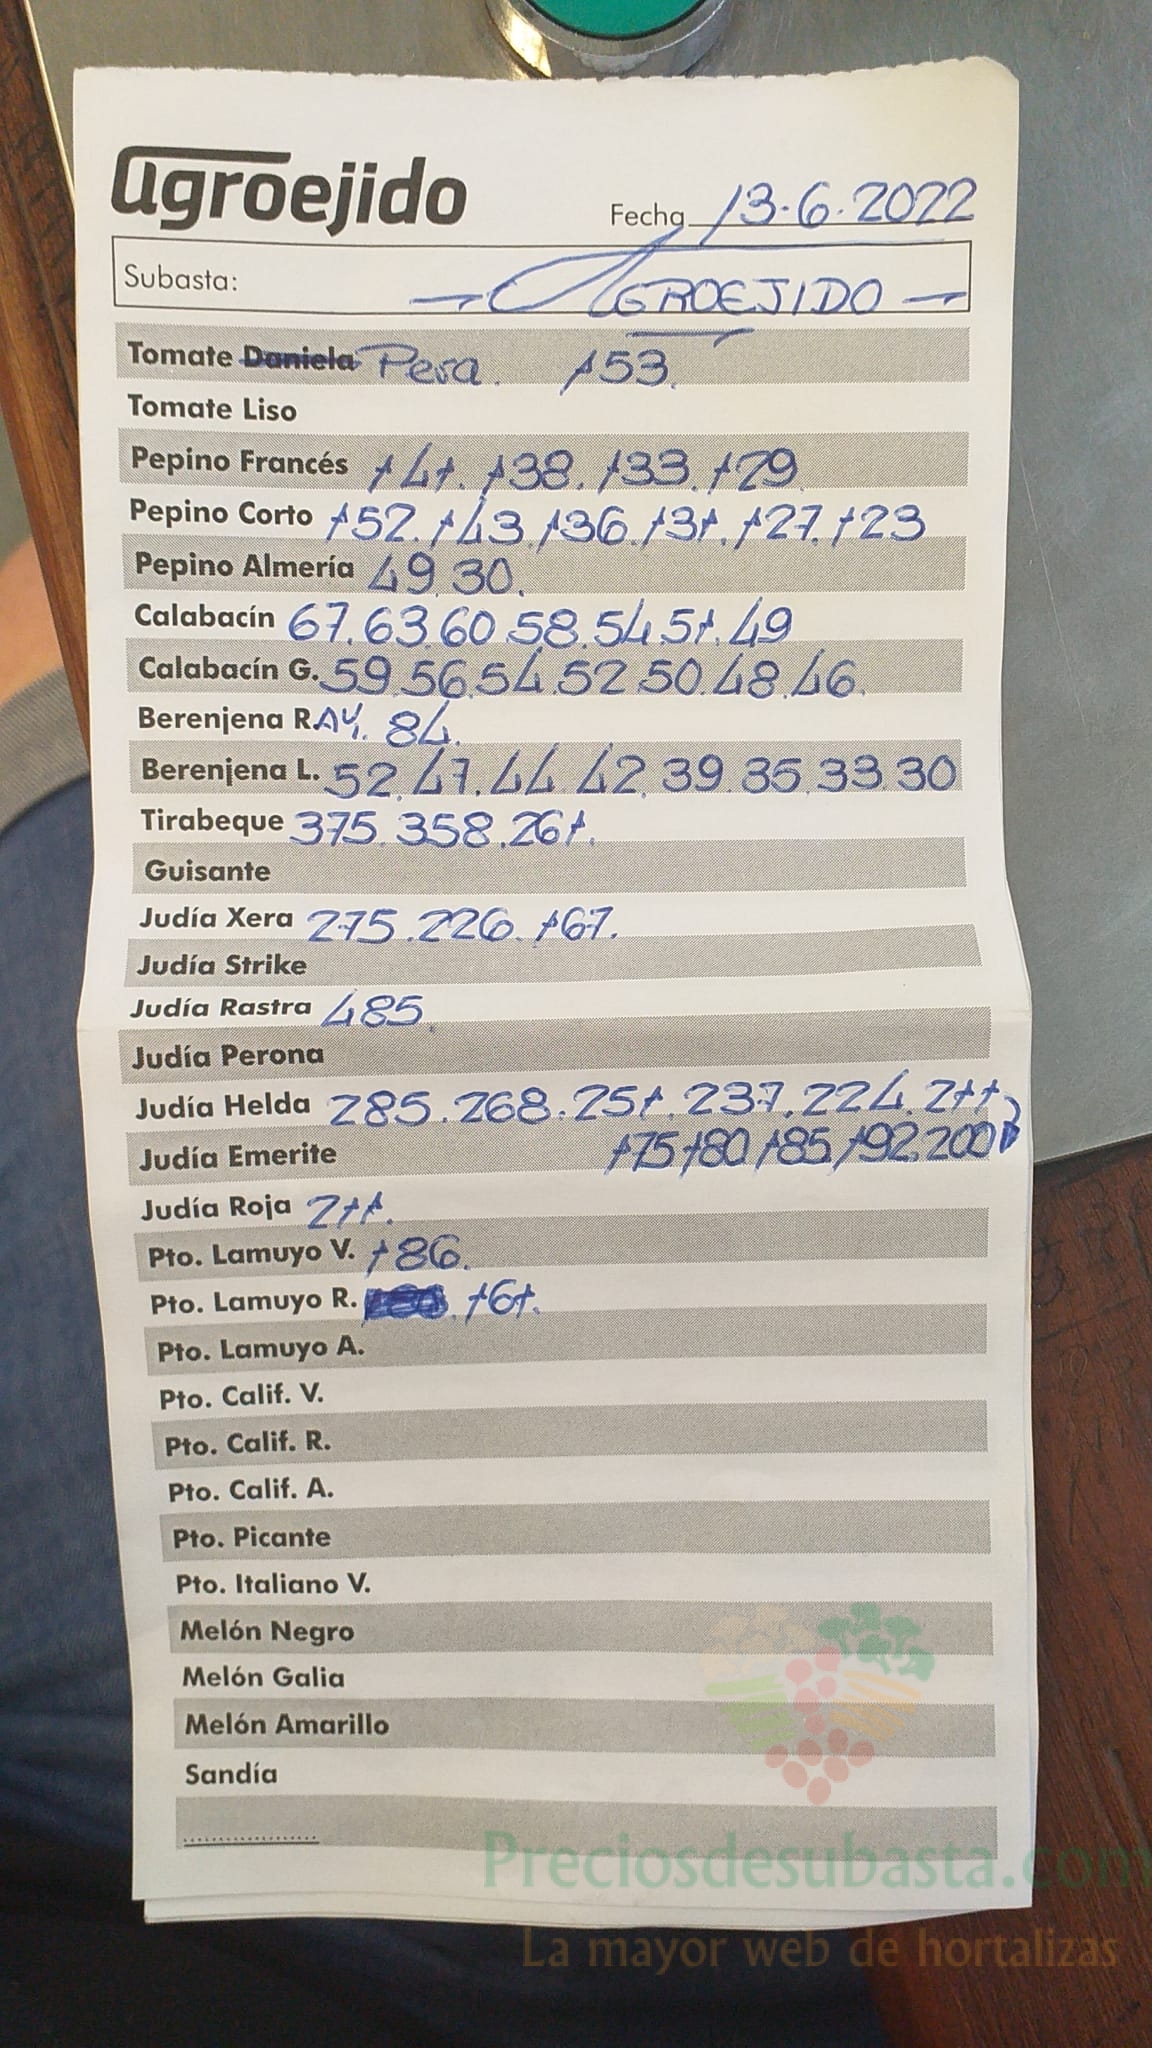 agroejido
Fecha 13.6.2022
Subasta: AGROEJIDO
Tomate Daniela Pera. 153.
Tomate Liso
Pepino Francés 141. 138. 133. 129
Pepino Corto 152. 143. 136. 131. 127. 123
Pepino Almería 49. 30.
Calabacín 67. 63. 60. 58. 54. 51. 49
Calabacín G. 59. 56. 54. 52. 50. 48. 46.
Berenjena RAY. 84.
Berenjena L. 52. 47. 44. 42. 39. 35. 33. 30
Tirabeque 375. 358. 261.
Guisante
Judía Xera 275. 226. 167.
Judía Strike
Judía Rastra 485.
Judía Perona
Judía Helda 285. 268. 251. 237. 224. 211
Judía Emerite 175 180 185 192 200
Judía Roja 211.
Pto. Lamuyo V. 186.
Pto. Lamuyo R. 161.
Pto. Lamuyo A.
Pto. Calif. V.
Pto. Calif. R.
Pto. Calif. A.
Pto. Picante
Pto. Italiano V.
Melón Negro
Melón Galia
Melón Amarillo
Sandía
Preciosdesubasta.com
La mayor web de hortalizas